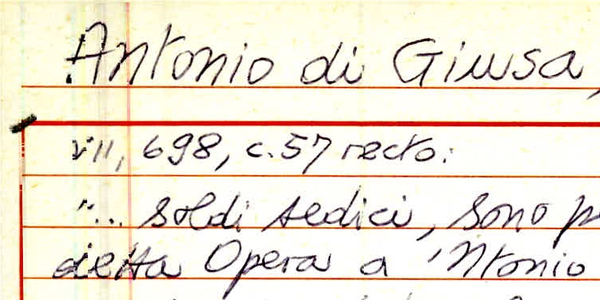 Antonio di Giusa,
VII, 698, c.57 recto:
"... soldi sedici, sono p
detta Opera a 'Ntonio